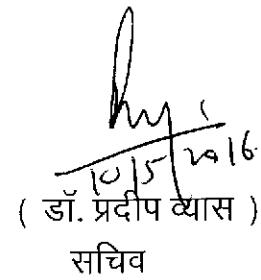 10/5/2016
( डॉ. प्रदीप व्यास )
सचिव